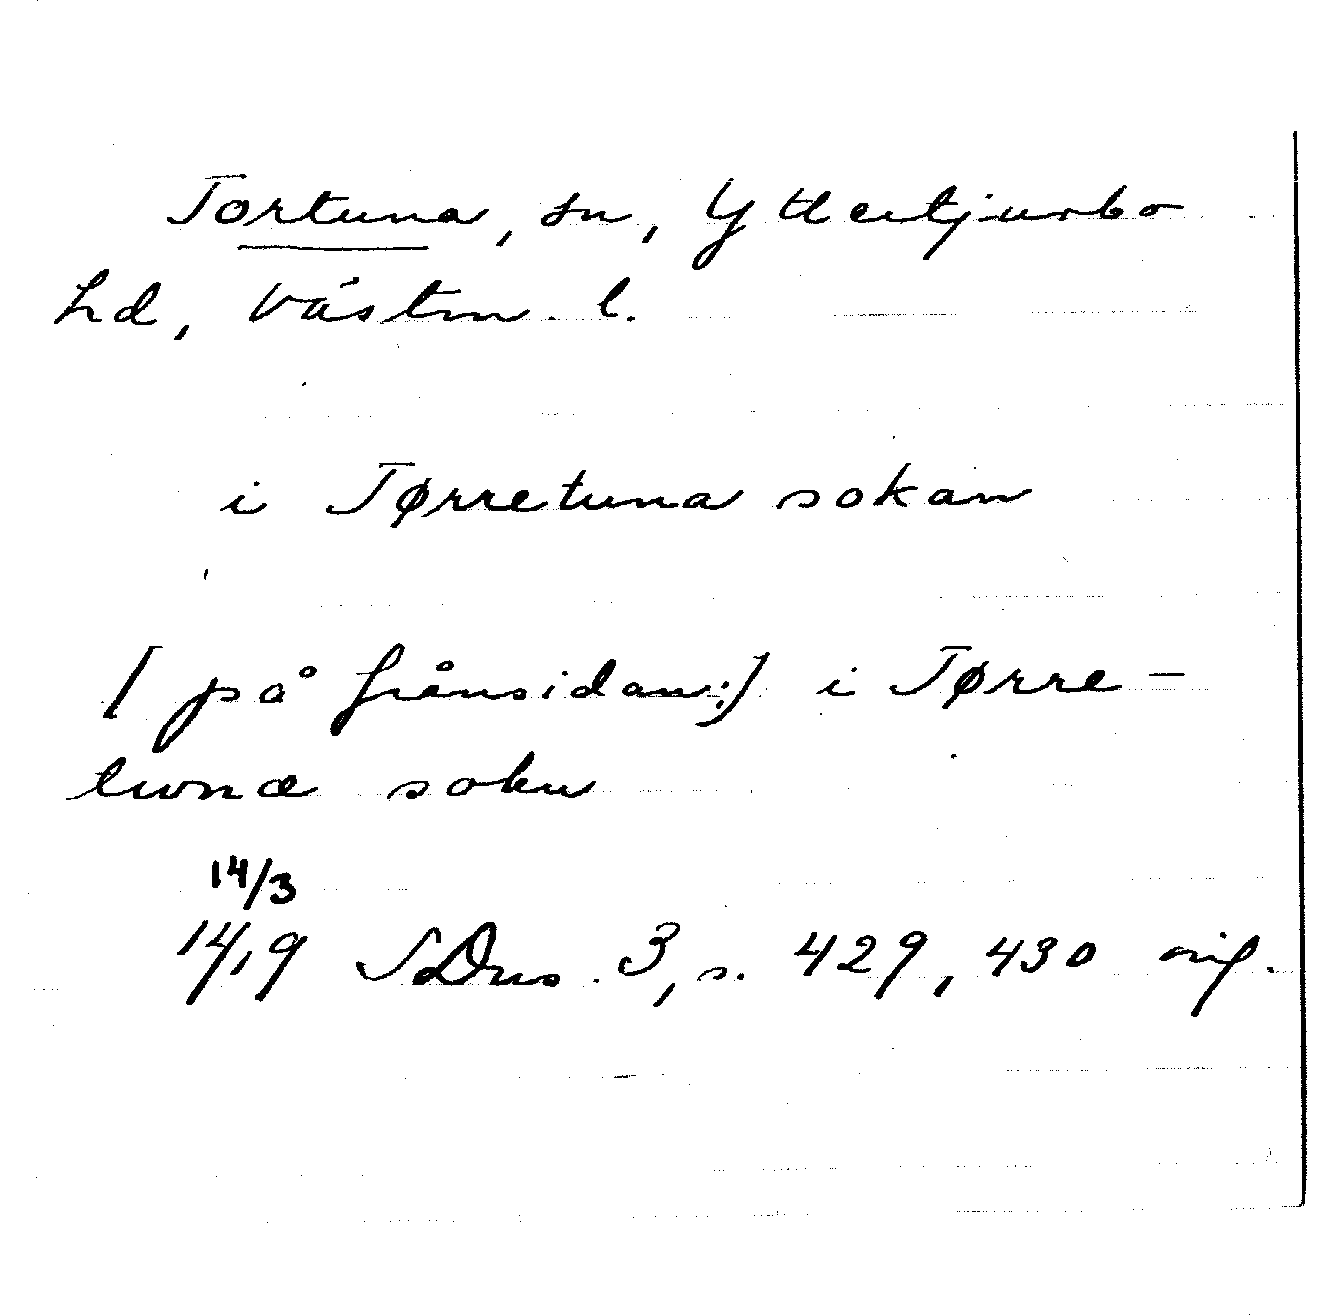 Tortuna, sn, Yttertjurbo
hd, Västm. l.
i Tørretuna sokan
[på frånsidan:] i Tørre-
twnæ sokn
14/3
1419 SDns. 3, s. 429, 430 orig.